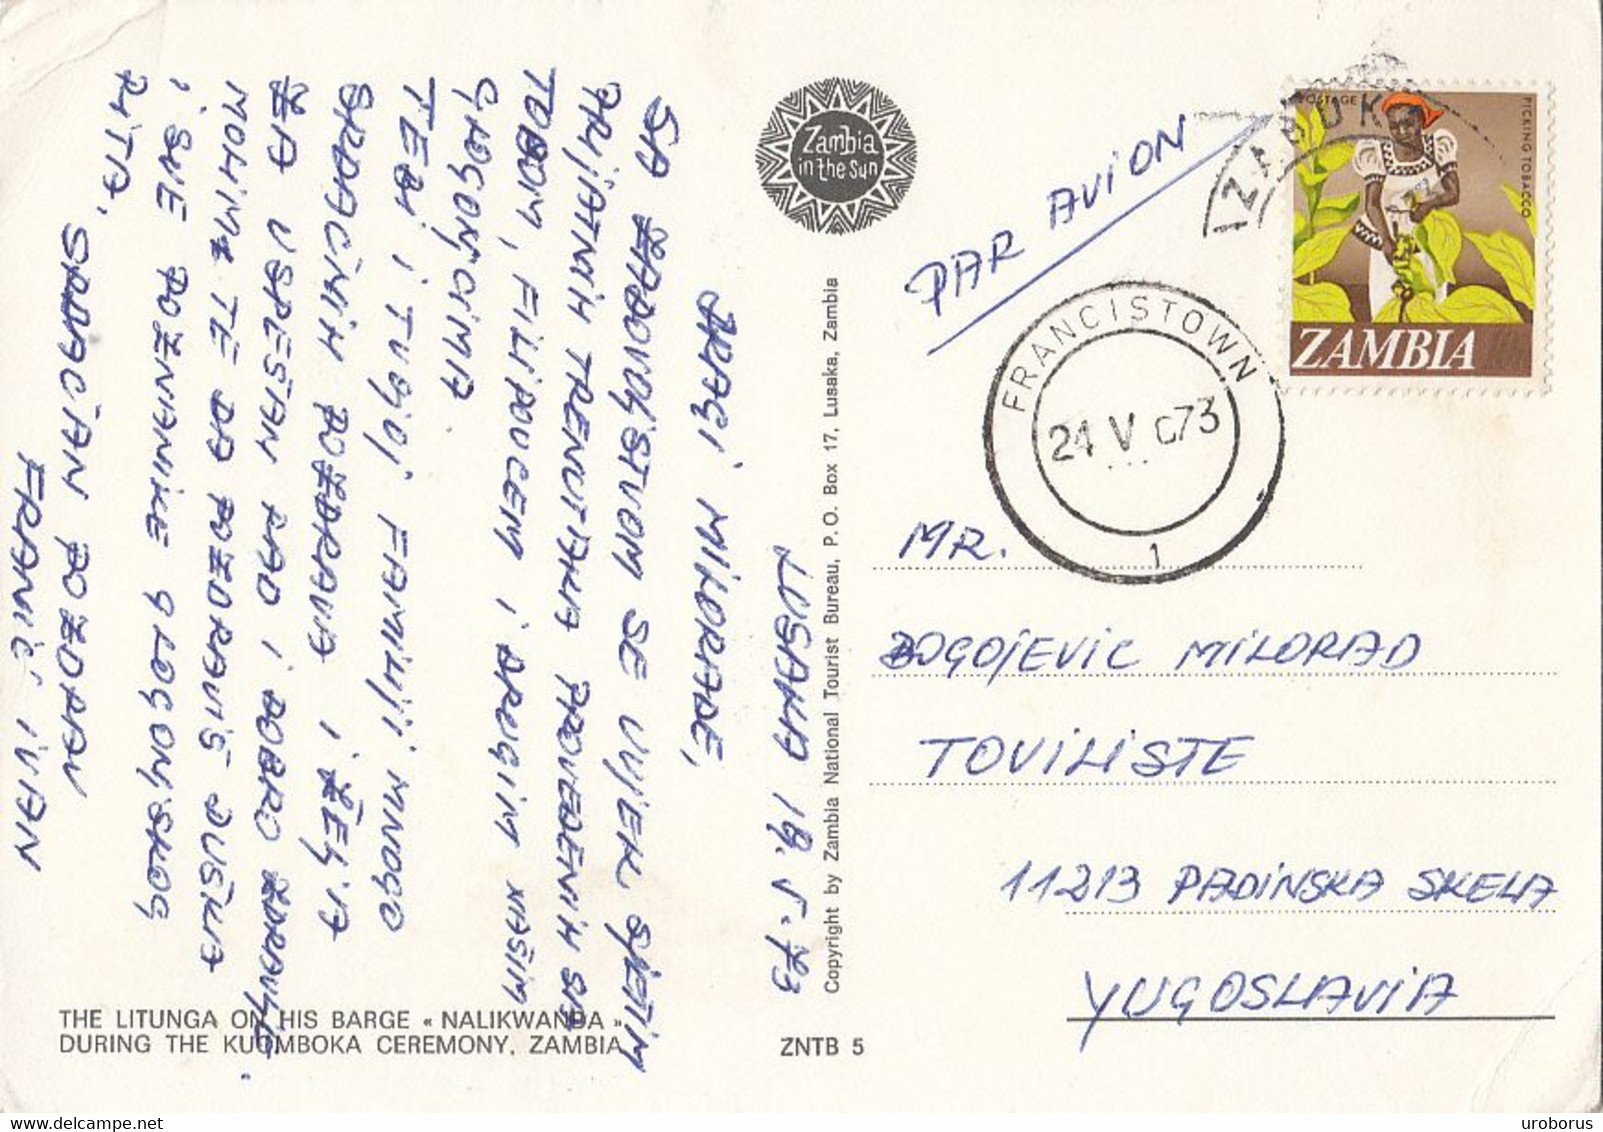 LUSAKA 19.5.73
DRAGI MILORADE,
SA ZADOVOLJSTVOM SE UVIJEK SJETIM
PRIJATNIH TRENUTAKA PROVEDENIH SA
TOBOM, FILIPOVCEM I DRUGIM NAŠIM
GLOGONJCIMA
TEBI I TVOJOJ FAMILIJI MNOGO
SRDAČNIH POZDRAVA I ŽELJA
ZA USPEŠAN RAD I DOBRO ZDRAVLJE.
MOLIM TE DA POZDRAVIŠ DUŠKA
I SVE POZNANIKE GLOGONJSKOG
RITA.
SRDAČAN POZDRAV
FRANIĆ IVAN
THE LITUNGA ON HIS BARGE « NALIKWANDA »
DURING THE KUOMBOKA CEREMONY, ZAMBIA
ZNTB 5
Zambia
in the Sun
Copyright by Zambia National Tourist Bureau, P. O. Box 17, Lusaka, Zambia
PAR AVION
POSTAGE
PICKING TOBACCO
ZAMBIA
FRANCISTOWN
24 V C73
1
MR.
BOGOJEVIC MILORAD
TOVILISTE
11213 PADINSKA SKELA
YUGOSLAVIA
uroborus